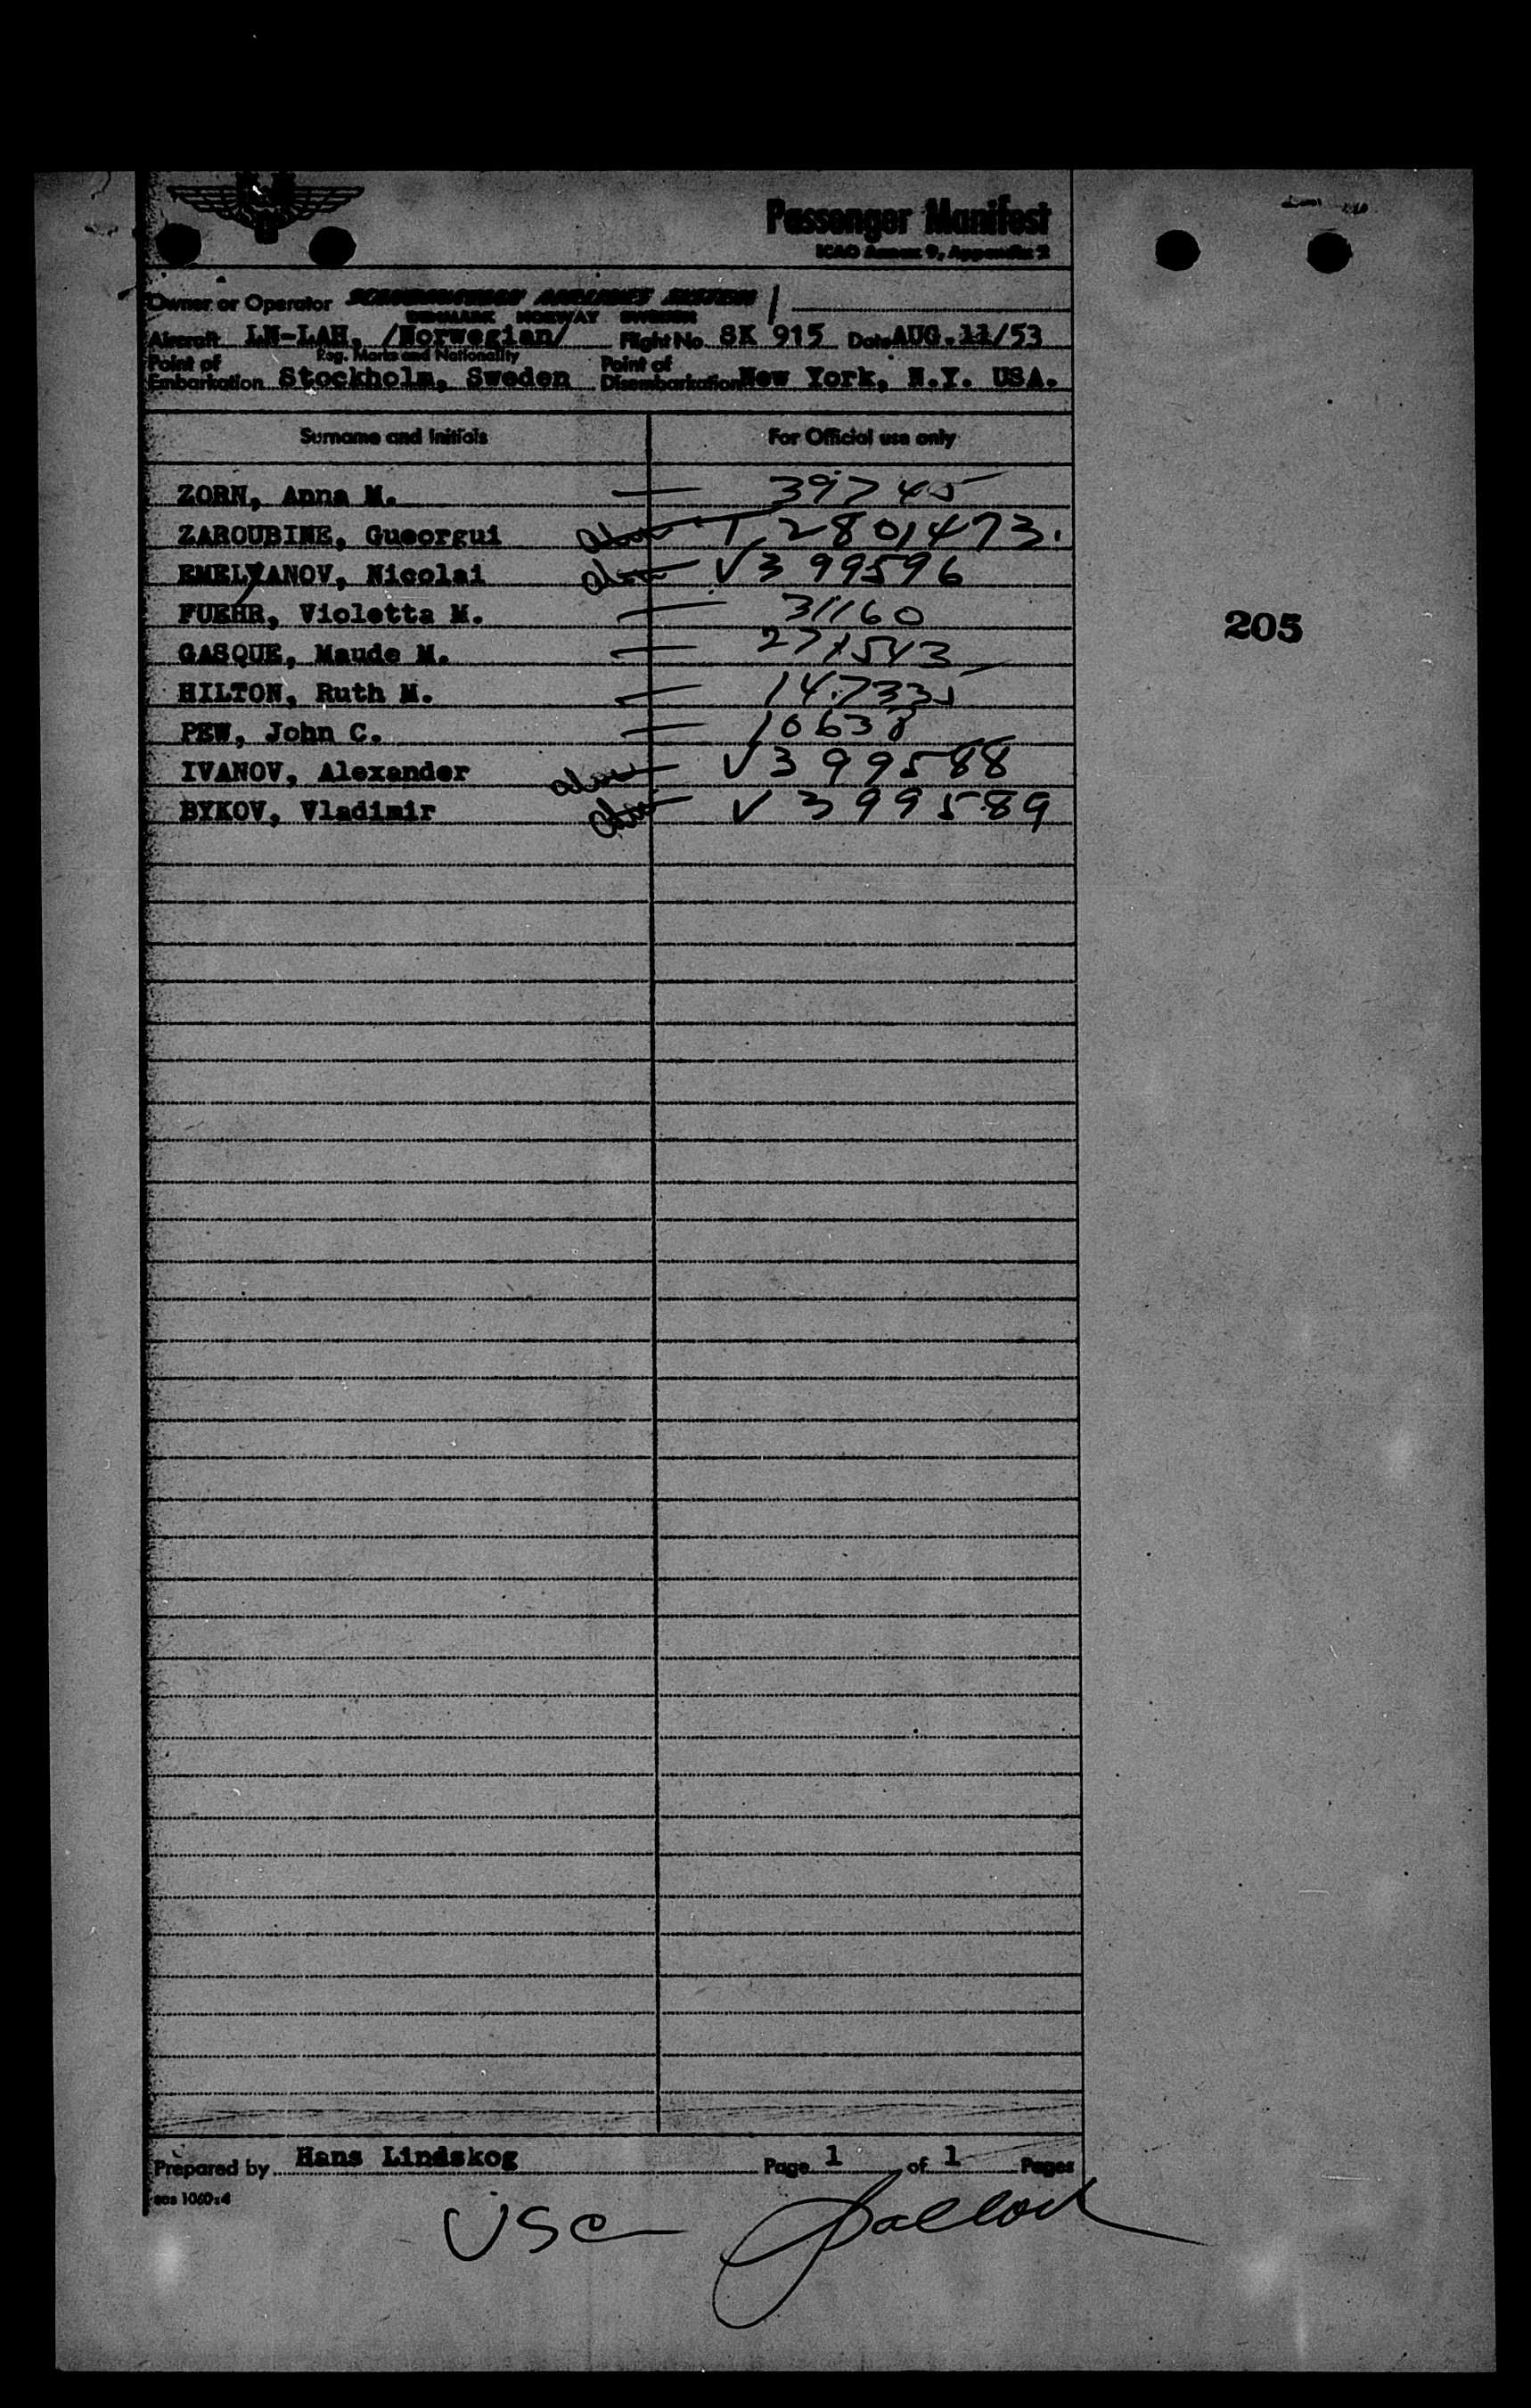 Passenger Manifest
ICAO Annex 9, Appendix 2
Owner or Operator SCANDINAVIAN AIRLINES SYSTEM
DENMARK NORWAY SWEDEN
Aircraft LN-LAH, /Norwegian/ Flight No SK 915 Date AUG.11/53
Reg. Marks and Nationality
Point of Embarkation Stockholm, Sweden Point of Disembarkation New York, N.Y. USA.
Surname and Initials For Official use only
ZORN, Anna M. 39745
ZAROUBINE, Gueorgui T 2801473.
EMELYANOV, Nicolai V399596
FUEHR, Violetta M. 31160
205
GASQUE, Maude M. 271543
HILTON, Ruth M. 147335
PEW, John C. 10638
IVANOV, Alexander V399588
BYKOV, Vladimir V399589
Prepared by Hans Lindskog Page 1 of 1 Pages
sas 1060:4
USC